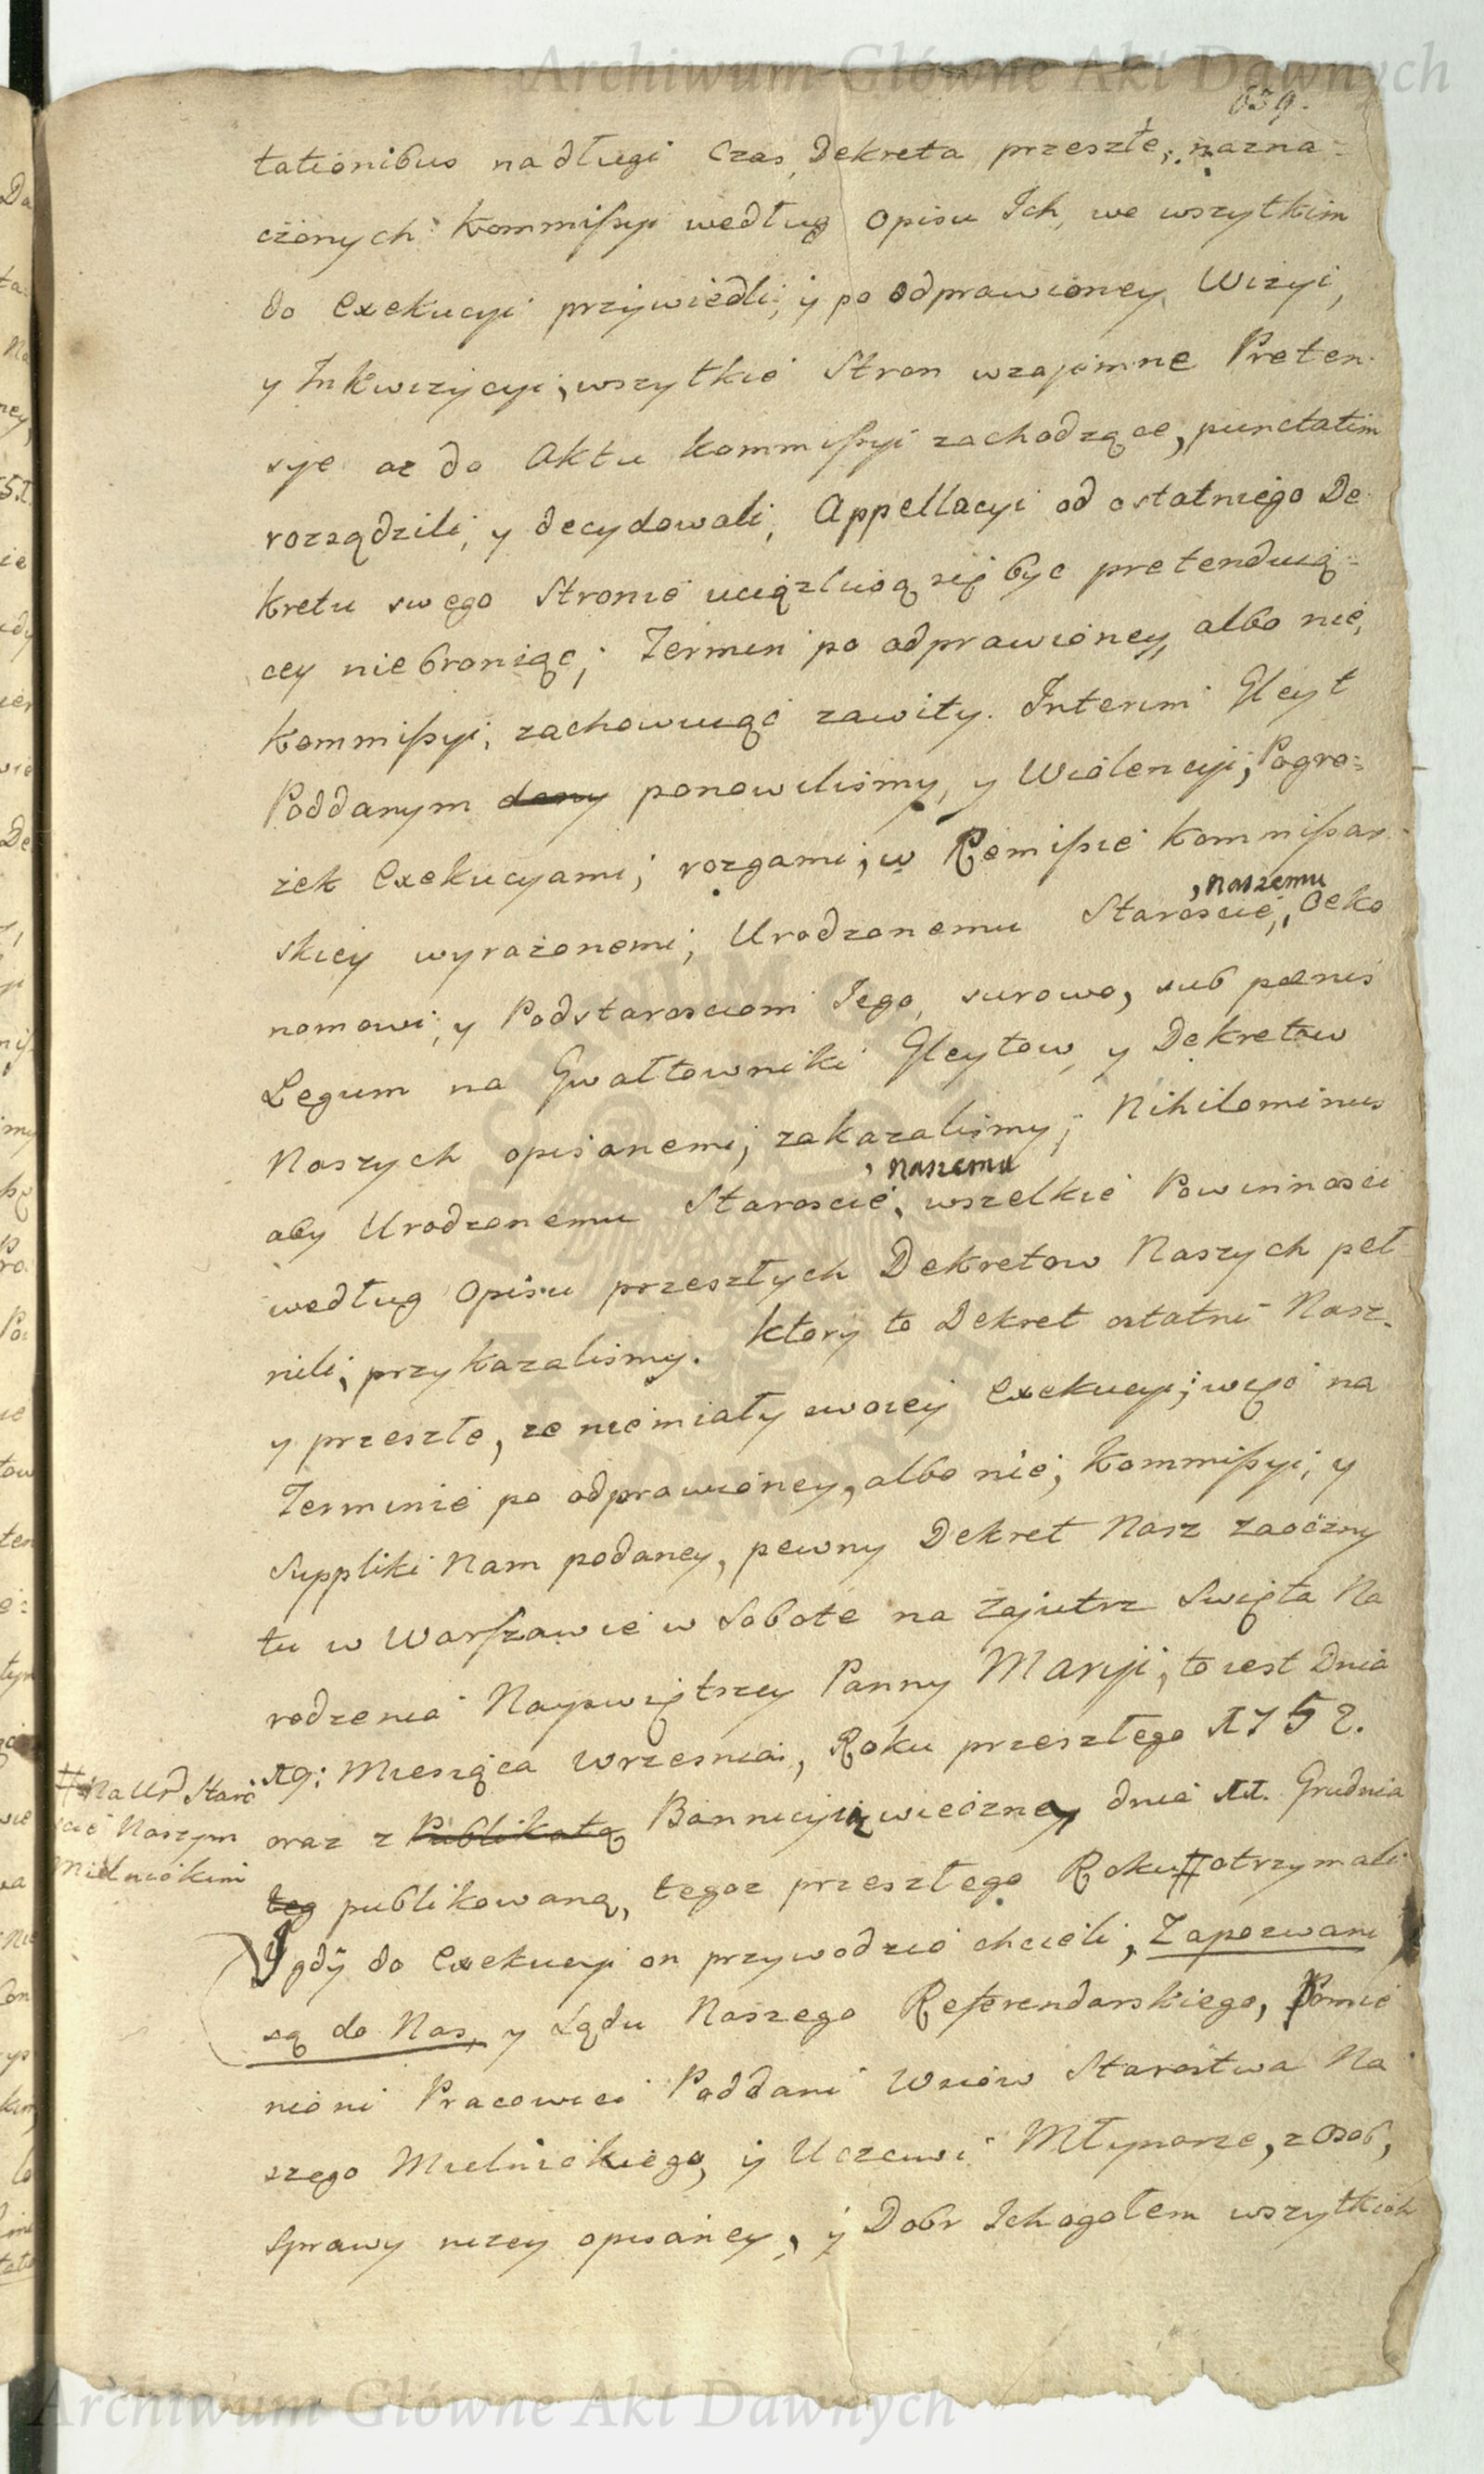 Archiwum Główne Akt Dawnych
639.
tationibus na długi Czas, Dekreta przeszłe, nazna-
czonych Kommissyi według Opisu Ich, we wszytkim
do Exekucyi przywiedli; y po odprawioney Wizyi,
y Inkwizycyi, wszytkie Stron wzaiemne Preten-
syie az do Aktu Kommissyi zachodzące, punctatim
rozsądzili, y decydowali, Appellacyi od ostatniego De-
kretu swego Stronie uciązliwą się byc pretenduią-
cey niebroniąc; Termin po odprawioney, albo nie,
Kommissyi, zachowuiąc zawity. Interim Gleyt
Poddanym dany ponowilismy, y Wiolencyi, Pogro-
zek Exekucyami, rozgami, w Remissie Kommissar-
skiey wyrazonemi, Urodzonemu Staroscie, Oeko
, naszemu
nomowi, y Podstarosciom Iego, surowo, sub poenis
Legum na Gwałtowniki Gleytow, y Dekretow
Naszych opisanemi, zakazalismy; Nihilominus
, naszemu
aby Urodzonemu Staroscie, wszelkie Powinnosci
według Opisu przeszłych Dekretow Naszych peł-
nili, przykazalismy. Ktory to Dekret ostatni Nasz,
y przeszłe, ze niemiały swoiey Exekucyi; więc na
Terminie po odprawioney, albo nie, Kommissyi, y
Suppliki Nam podaney, pewny Dekret Nasz Zaoczny
tu w Warszawie w Sobote na Zajutrz Swięta Na
rodzenia Nayswiętszey Panny Maryi, to iest Dnia
19: Miesiąca Wrzesnia, Roku przeszłego 1752.
# Na Ur Staro
scie Naszym
Mielnickim
oraz z Publikatą Bannicyią wieczney dnia 11. Grudnia
teg publikowaną, tegoz przeszłego Roku # otrzymali
Y gdy do Exekucyi on przywodzic chcieli, Zapozwani
są do Nas, y Sądu Naszego Referendarskiego, Pomie
nioni Pracowici Poddani Wsiow Starostwa Na
szego Mielnickiego, y Uczciwi Młynarze, z Osob,
Sprawy nizey opisaney, y Dobr Ich ogołem wszytkich
Archiwum Główne Akt Dawnych